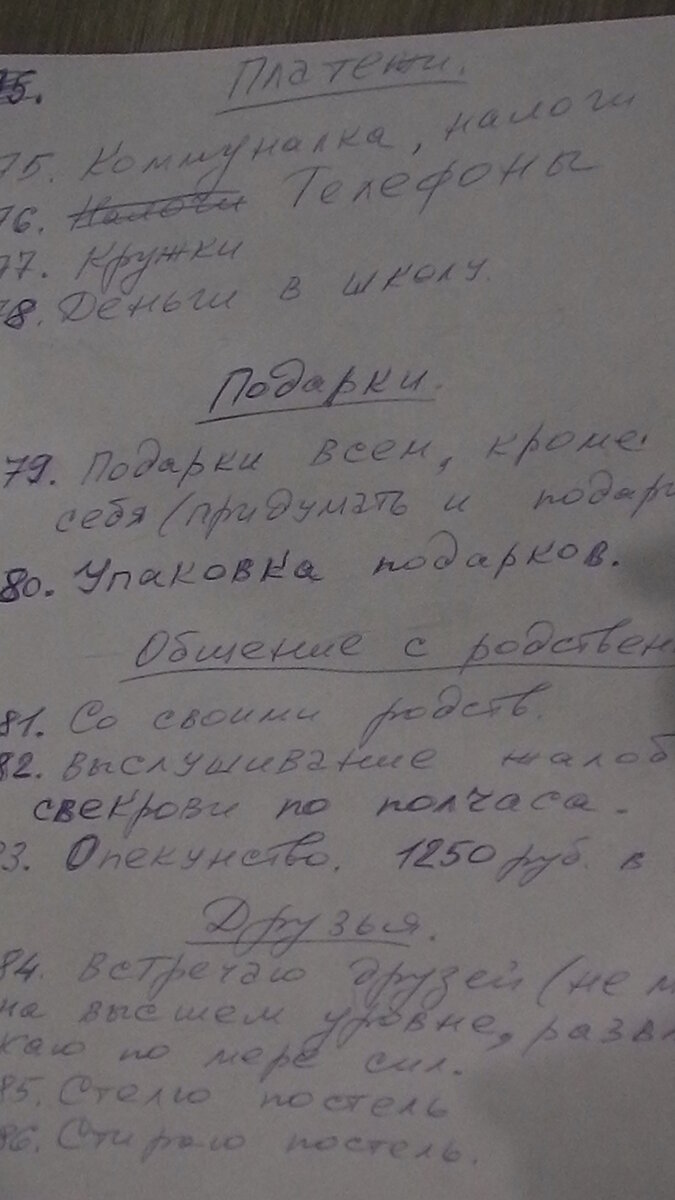 75.
Платежи.
75. Коммуналка, налоги
76. Налоги Телефоны
77. Кружки
78. Деньги в школу.
Подарки.
79. Подарки всем, кроме
себя (придумать и подари
80. Упаковка подарков.
Общение с родствен
81. Со своими родств.
82. выслушивание жалоб
свекрови по полчаса.
83. Опекунство. 1250 руб. в
Друзья.
84. Встречаю друзей (не м
на высшем уровне, развл
каю по мере сил.
85. Стелю постель
86. Стираю постель.